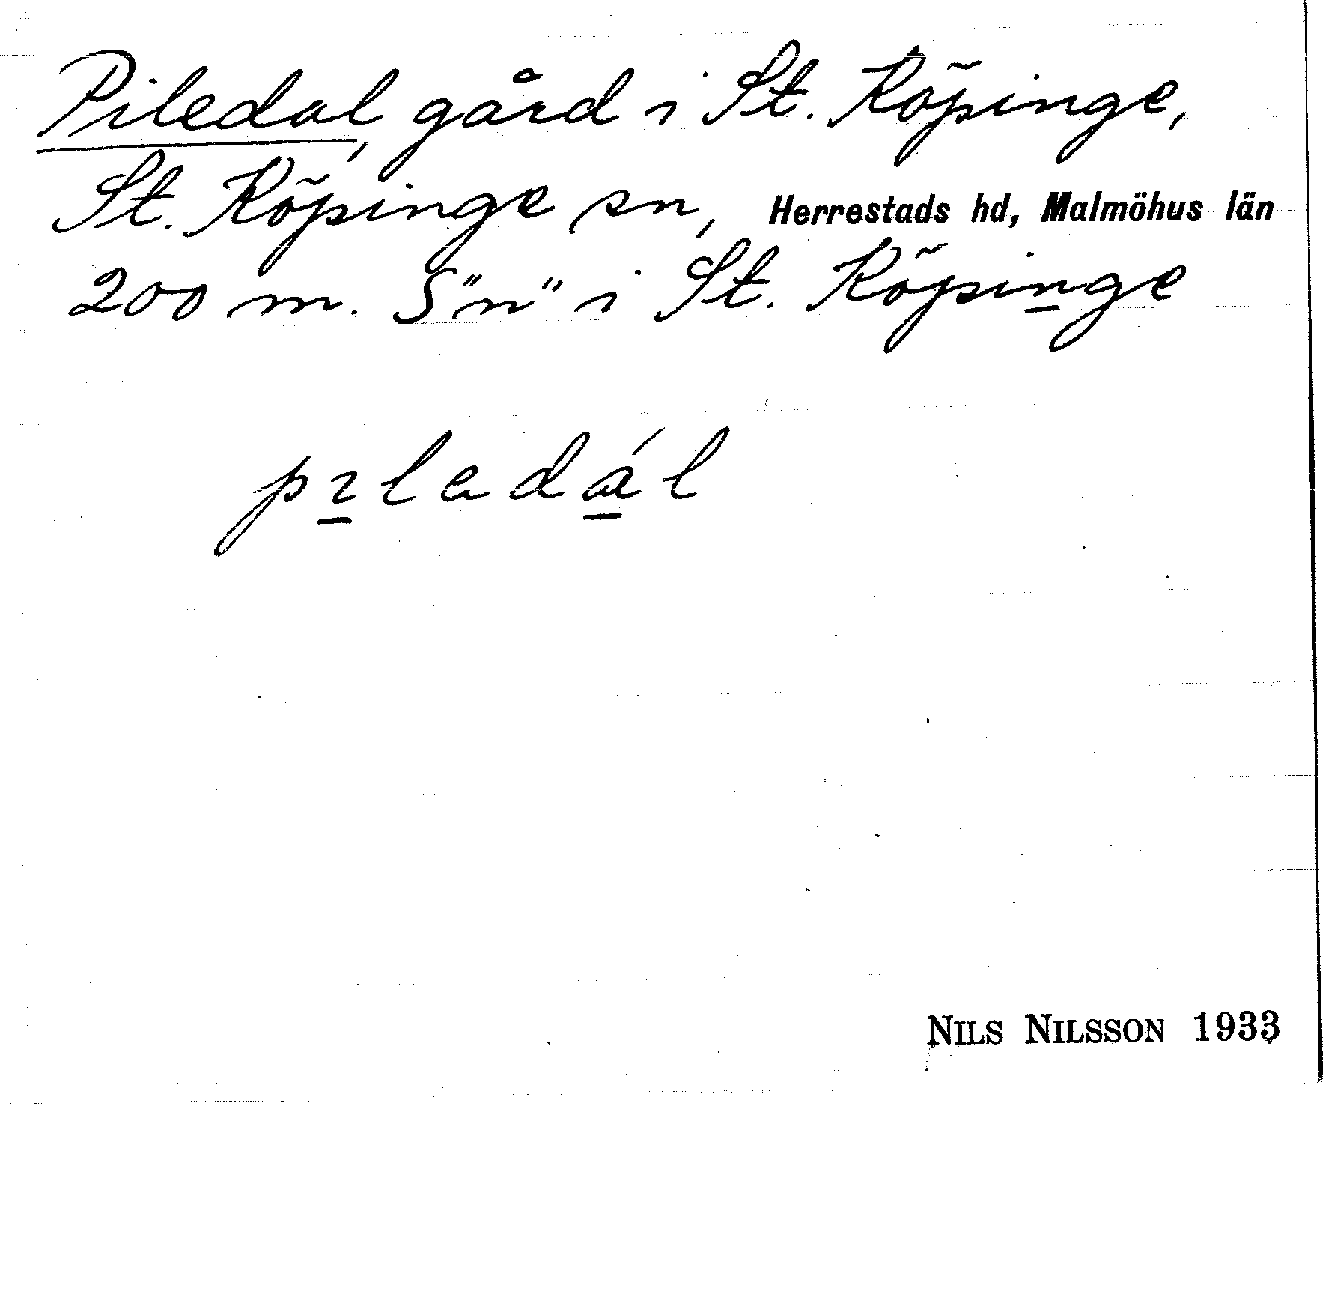 Piledal, gård i St. Köpinge,
St. Köpinge sn, Herrestads hd, Malmöhus län
200 m. S "n" i St. Köpinge
pıladál
NILS NILSSON 1933